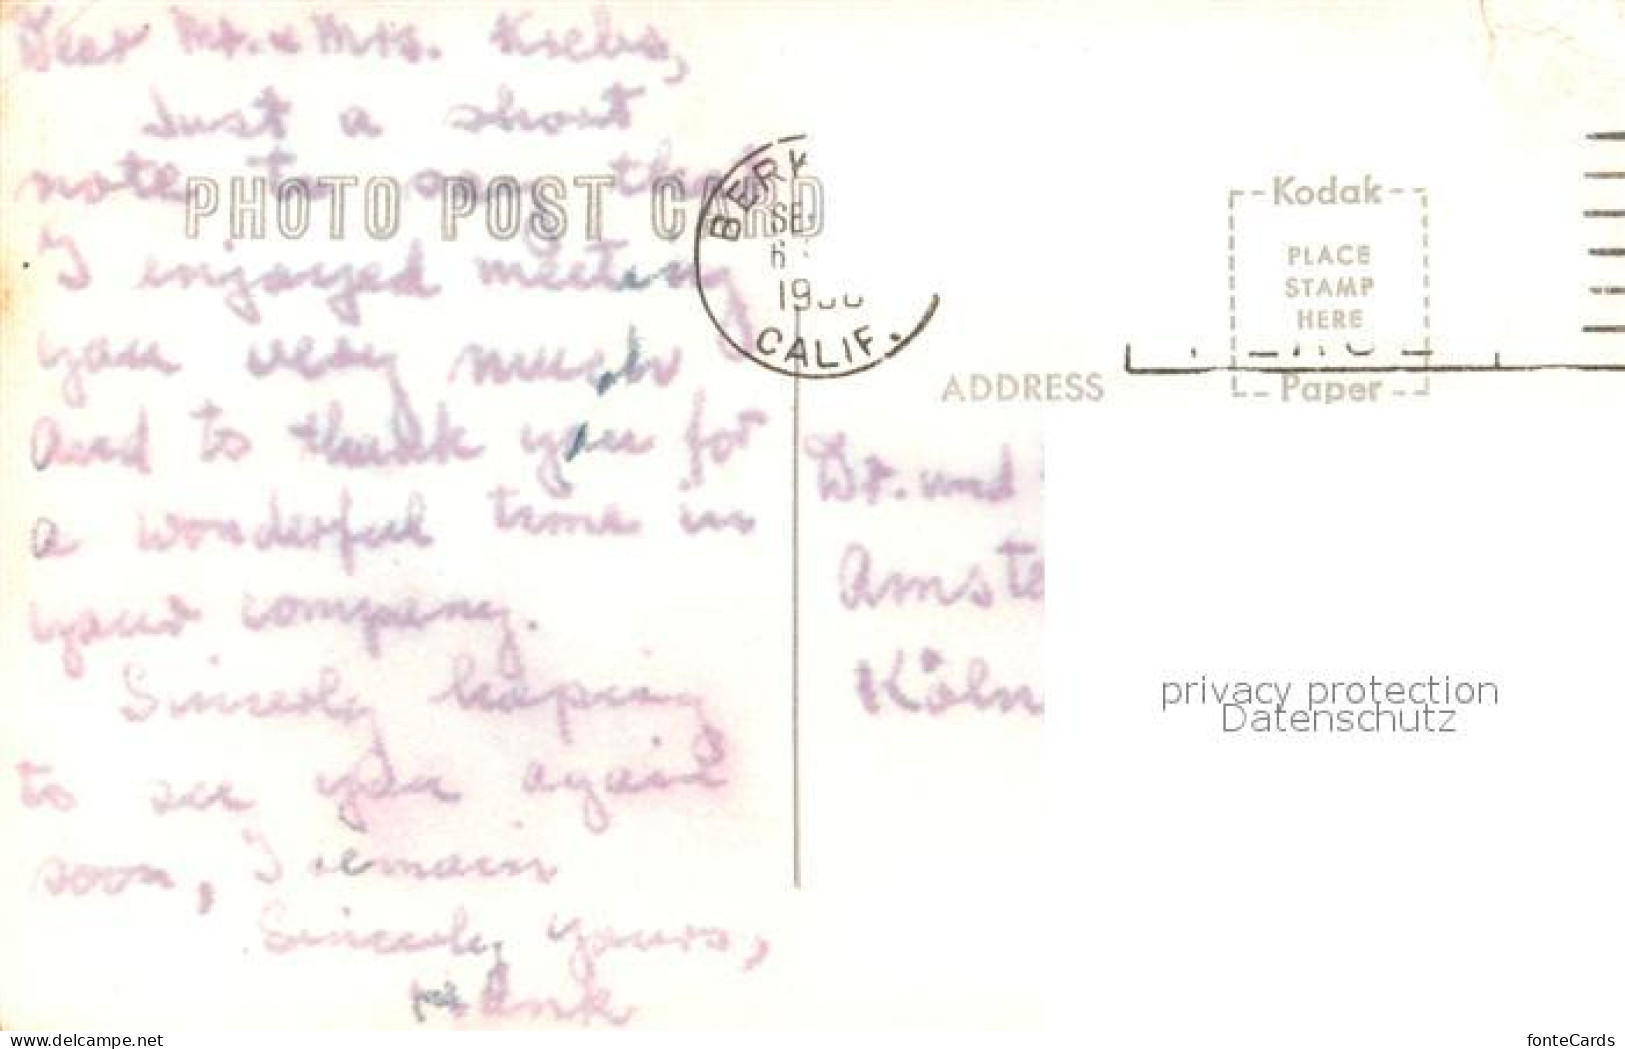 Dear Mr. & Mrs. Krebs,
Just a short
note to say that
I enjoyed meeting
you very much
and to thank you for
a wonderful time in
your company.
Sincerly hoping
to see you again
soon, I remain
Sincerly yours,
Hank
PHOTO POST CARD
BERK
SE
6
19
CALIF.
Kodak
PLACE
STAMP
HERE
Paper
ADDRESS
Dr. und
Amste
Köln
privacy protection
Datenschutz
www.delcampe.net
fonteCards